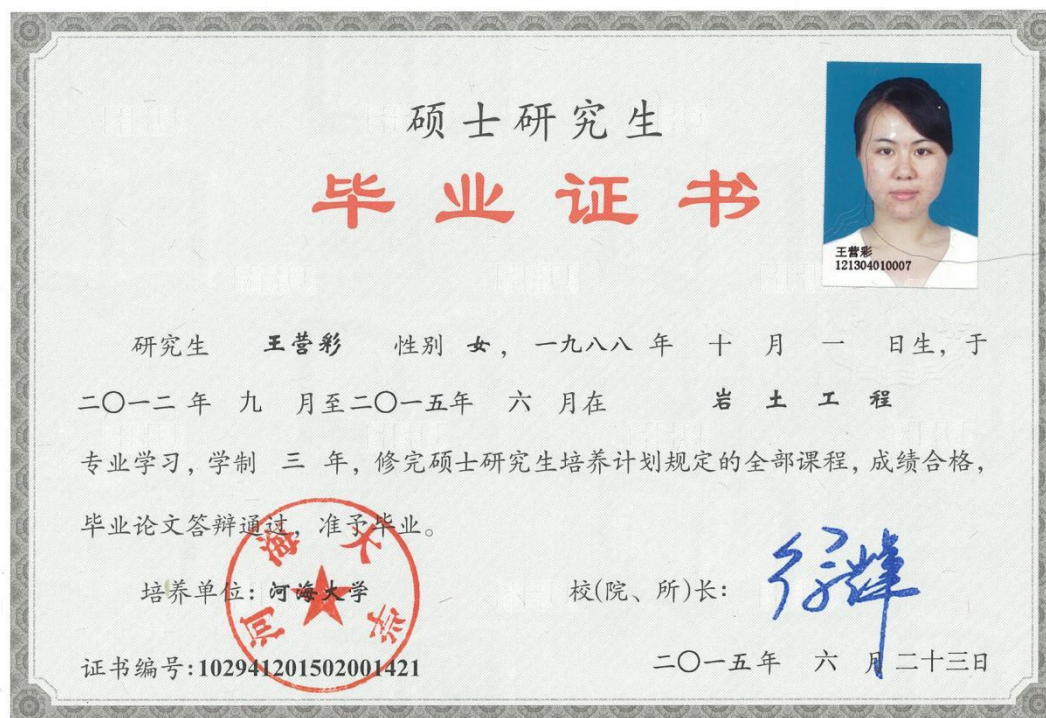 硕士研究生
毕业证书
王营彩
121304010007
研究生 王营彩 性别 女，一九八八 年 十 月 一 日生，于
二〇一二 年 九 月至二〇一五年 六 月在 岩土工程
专业学习，学制 三 年，修完硕士研究生培养计划规定的全部课程，成绩合格，
毕业论文答辩通过，准予毕业。
培养单位：河海大学 校(院、所)长：徐辉
河海大学
证书编号:102941201502001421 二〇一五年 六 月二十三日